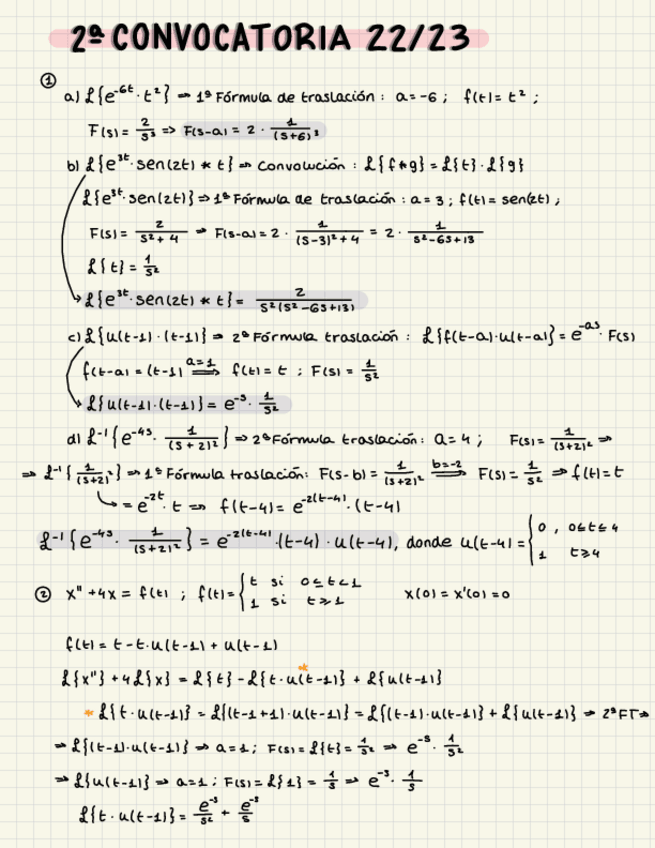 2ª CONVOCATORIA 22/23
①
a) ℒ{e^{-6t}·t²} ⇒ 1ª Fórmula de traslación : a=-6 ; f(t)= t² ;
F(s)= 2/s³ ⇒ F(s-a) = 2 · 1/(s+6)³
b) ℒ{e^{3t}·sen(2t) * t} ⇒ Convolución : ℒ{f*g} = ℒ{f}·ℒ{g}
ℒ{e^{3t}·sen(2t)} ⇒ 1ª Fórmula de traslación : a = 3 ; f(t) = sen(2t) ;
F(s)= 2/(s²+4) ⇒ F(s-a) = 2 · 1/((s-3)²+4) = 2 · 1/(s²-6s+13)
ℒ{t} = 1/s²
ℒ{e^{3t}·sen(2t) * t} = 2/(s²(s²-6s+13))
c) ℒ{u(t-1)·(t-1)} ⇒ 2ª Fórmula traslación : ℒ{f(t-a)·u(t-a)} = e^{-as}· F(s)
f(t-a) = (t-1) a=1 ⟹ f(t) = t ; F(s) = 1/s²
ℒ{u(t-1)·(t-1)} = e^{-s} · 1/s²
d) ℒ⁻¹{e^{-4s} · 1/(s+2)²} ⇒ 2ª Fórmula traslación: a = 4 ; F(s) = 1/(s+2)² ⇒
⇒ ℒ⁻¹{1/(s+2)²} ⇒ 1ª Fórmula traslación: F(s-b) = 1/(s+2)² b=-2 ⟹ F(s) = 1/s² ⇒ f(t) = t
↳ = e^{-2t} · t ⇒ f(t-4) = e^{-2(t-4)}·(t-4)
ℒ⁻¹{e^{-4s} · 1/(s+2)²} = e^{-2(t-4)}·(t-4) · u(t-4), donde u(t-4) = { 0 , 0≤t≤4
1 t≥4
② x" +4x = f(t) ; f(t) = { t si 0≤t<1 x(0) = x'(0) = 0
1 si t≥1
f(t) = t - t·u(t-1) + u(t-1)
*
ℒ{x"} + 4ℒ{x} = ℒ{t} - ℒ{t·u(t-1)} + ℒ{u(t-1)}
* ℒ{t·u(t-1)} = ℒ{(t-1+1)·u(t-1)} = ℒ{(t-1)·u(t-1)} + ℒ{u(t-1)} ⇒ 2ª FT ⇒
⇒ ℒ{(t-1)·u(t-1)} ⇒ a=1 ; F(s) = ℒ{t} = 1/s² ⇒ e^{-s} · 1/s²
⇒ ℒ{u(t-1)} ⇒ a=1 ; F(s) = ℒ{1} = 1/s ⇒ e^{-s} · 1/s
ℒ{t·u(t-1)} = e^{-s}/s² + e^{-s}/s